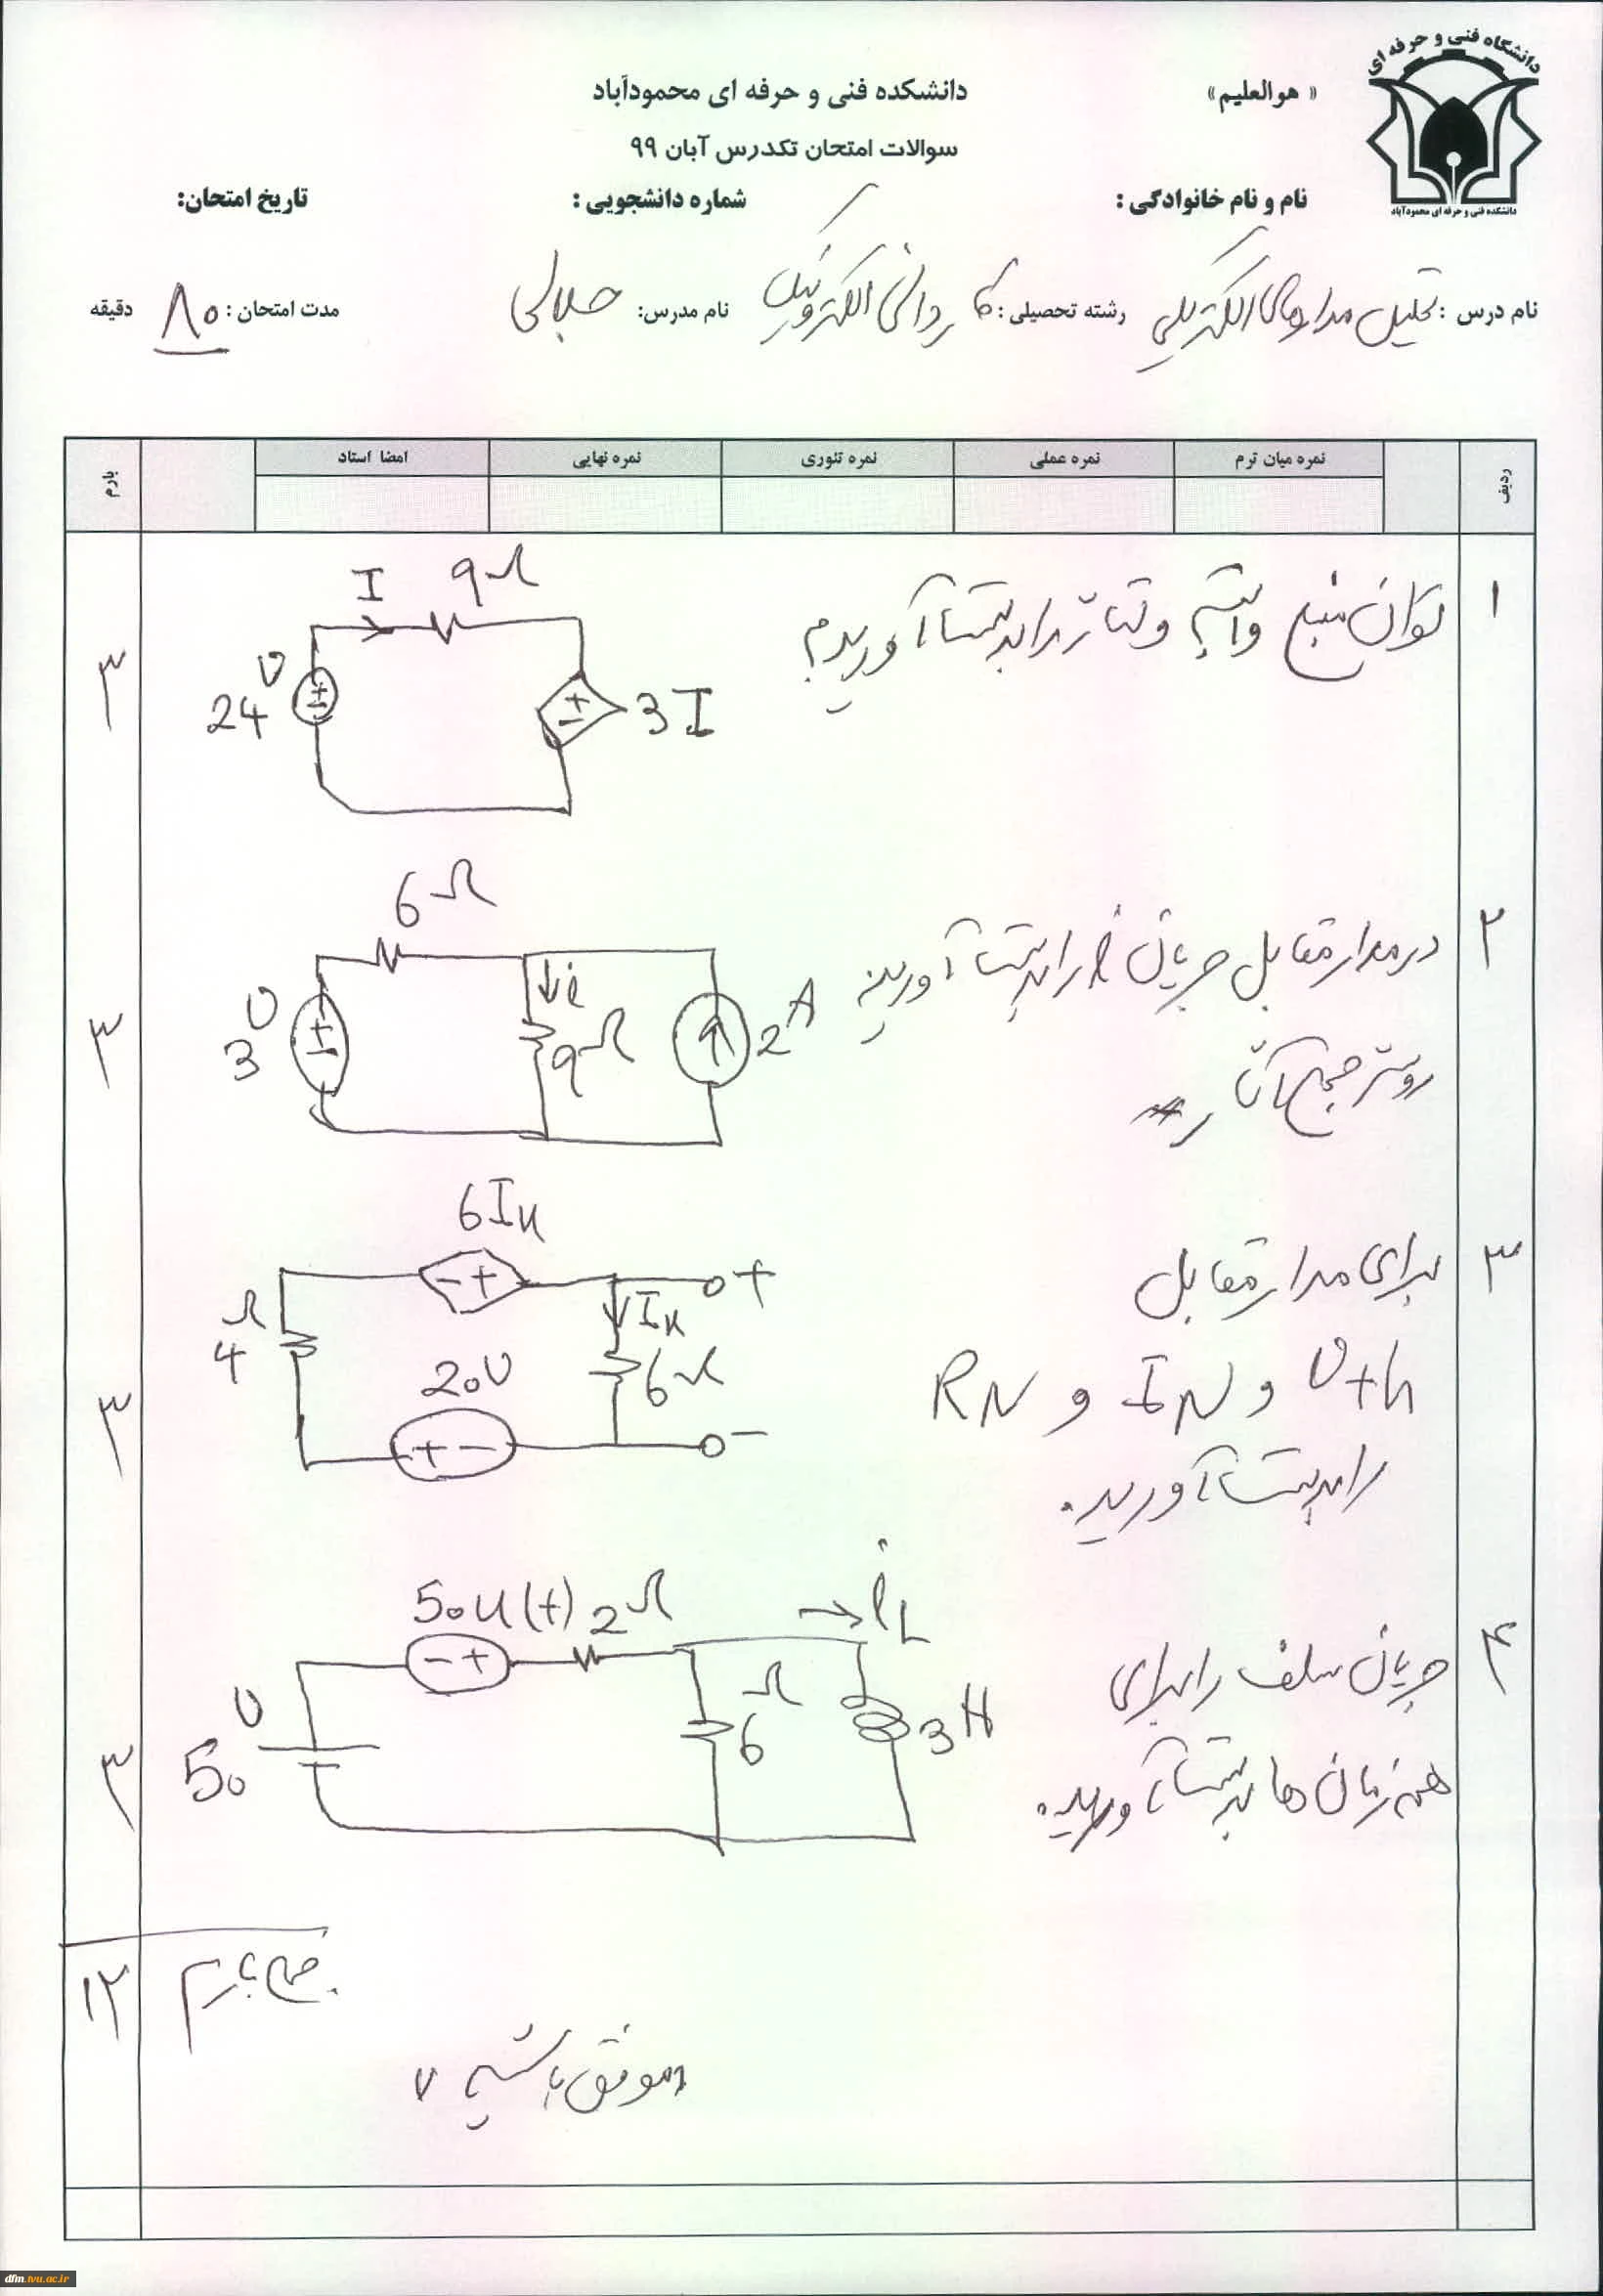 دانشگاه فنی و حرفه ای
دانشکده فنی و حرفه ای محمودآباد
« هوالعلیم»
دانشکده فنی و حرفه ای محمودآباد
سوالات امتحان تکدرس آبان ۹۹
نام و نام خانوادگی : شماره دانشجویی : تاریخ امتحان:
نام درس : تحلیل مدارهای الکتریکی رشته تحصیلی : کاردانی الکترونیک نام مدرس: جلالی مدت امتحان : ۸۰ دقیقه
ردیف نمره میان ترم نمره عملی نمره تئوری نمره نهایی امضا استاد بارم
۱ توان منبع وابسته و را بدست آورید ۳
I 9Ω
24V
3I
۲ در مدار مقابل جریان i را بدست آورید ۳
روش جمع آثار
6Ω
3V
i
9Ω
2A
۳ برای مدار مقابل ۳
Vth و IN و RN
را بدست آورید.
6Ix
+
4Ω
Ix
6Ω
20V
-
۴ جریان سلف را برای ۳
همه زمان ها بدست آورید.
50u(t) 2Ω
iL
50V
6Ω
3H
جمع بارم ۱۲
موفق باشید
dfm.tvu.ac.ir